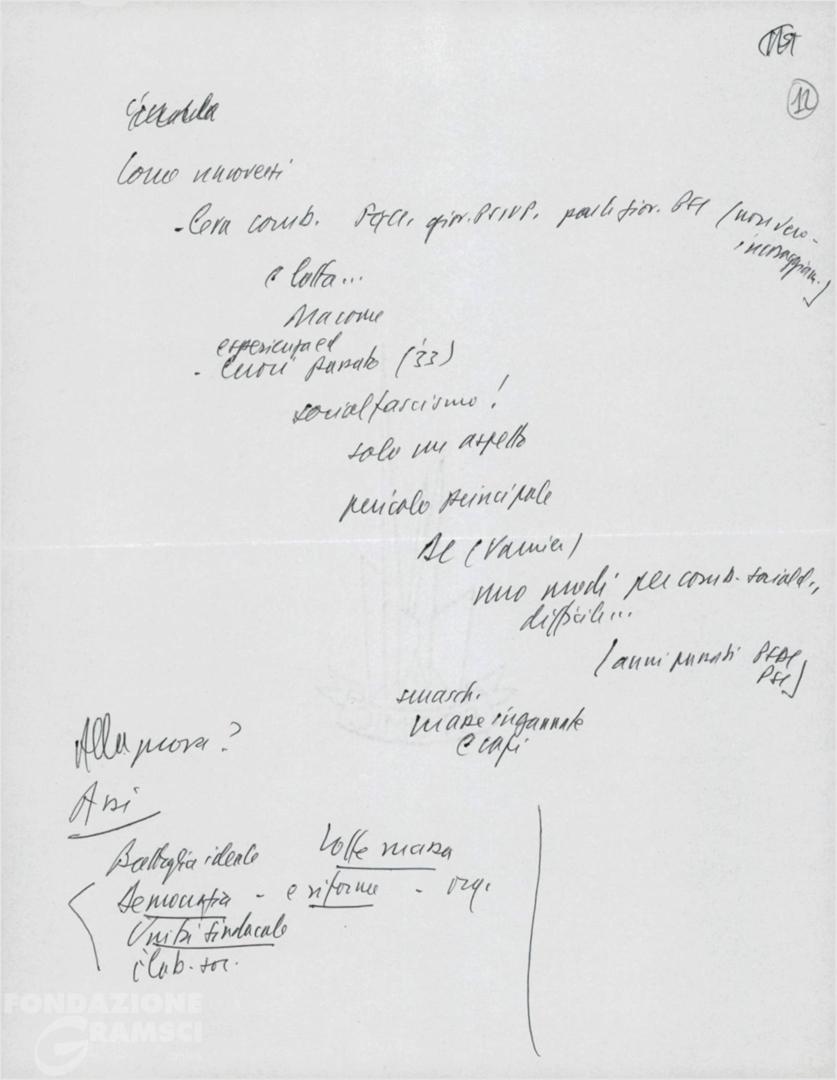 12
Come muoversi
- C'era comb. FGCI, giov. PSIUP, parte giov. PSI (non vero -
incoraggiam.)
e lotta...
Ma come
esperienza ed
- errori passato ('33)
socialfascismo!
solo un aspetto
pericolo principale
DC
modi per comb. sociald.,
difficile...
(anni passati PSDI
PSI)
smasch.
masse ingannate
e capi
Alla prova?
Assi
Battaglia ideale Lotte massa
Democrazia - e riforme - org.
Unità sindacale
elab. soc.
FONDAZIONE
GRAMSCI